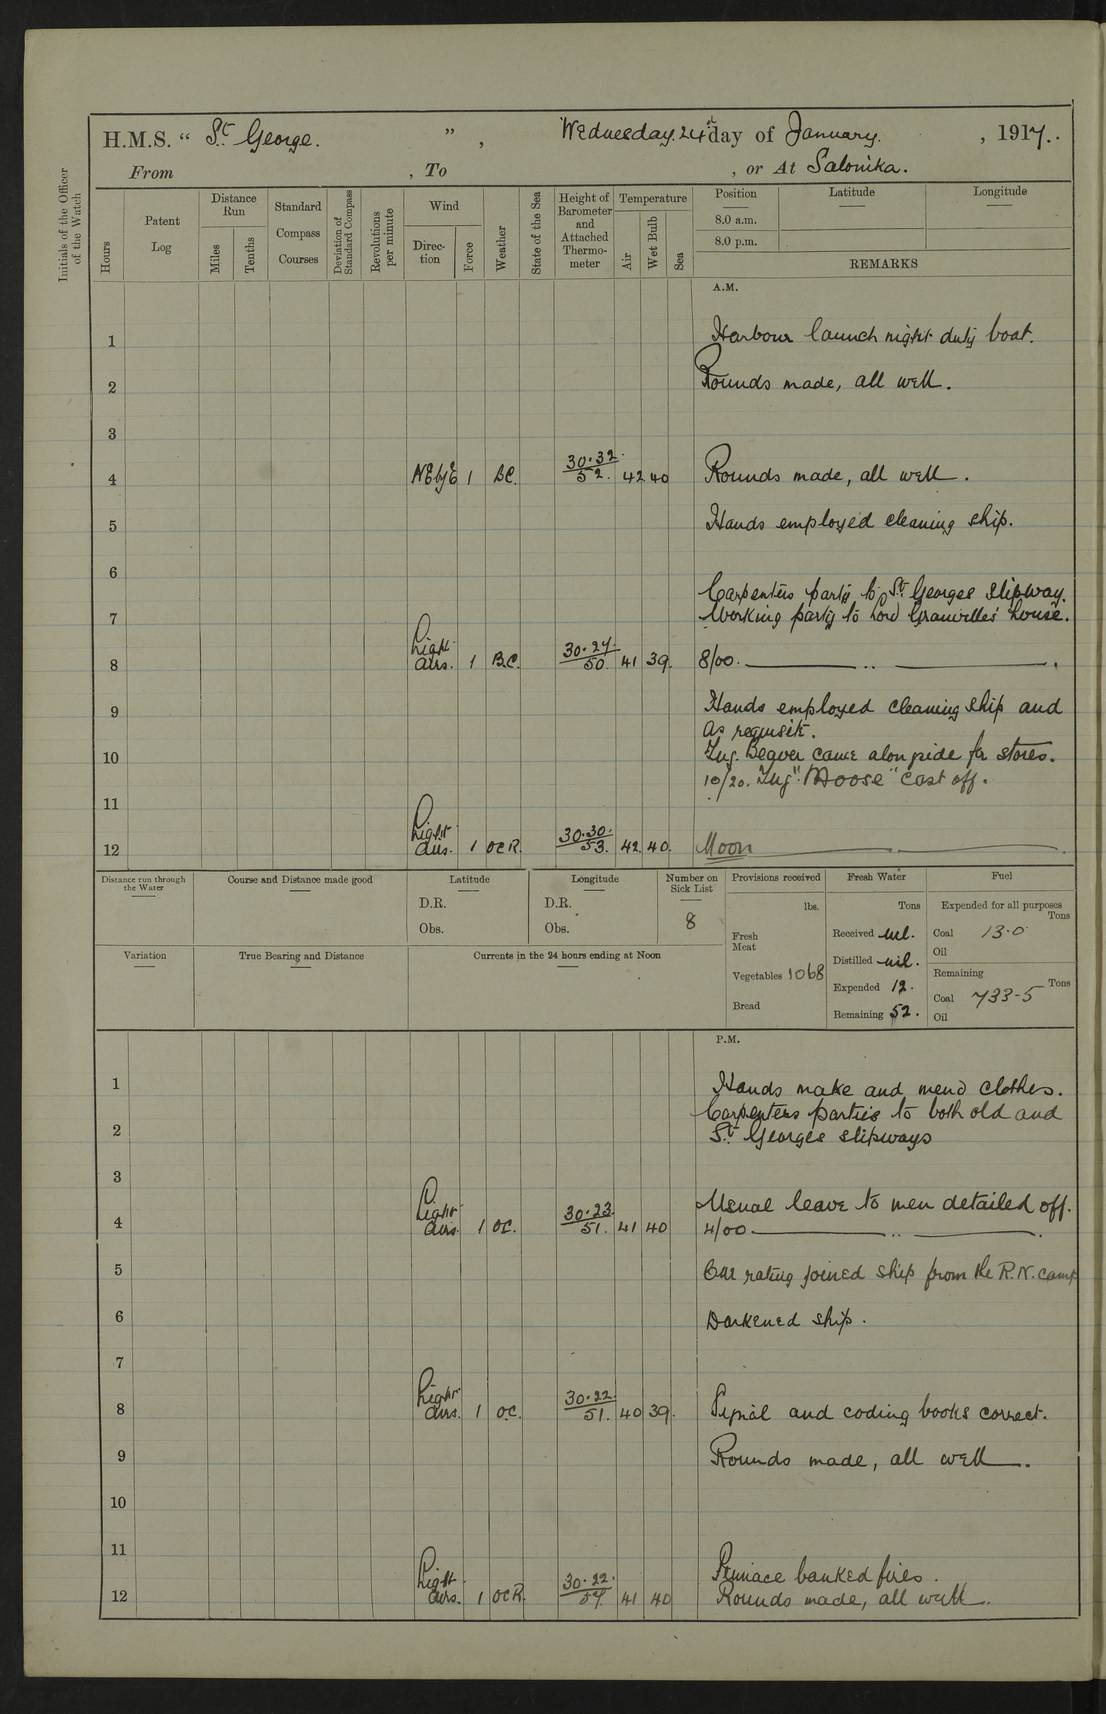 H.M.S. “ St. George. ”, Wednesday. 24th day of January. , 1917.
From , To , or At Salonika.
Initials of the Officer of the Watch
Hours
Patent Log
Distance Run
Miles
Tenths
Standard Compass Courses
Deviation of Standard Compass
Revolutions per minute
Wind
Direc-tion
Force
Weather
State of the Sea
Height of Barometer and Attached Thermo-meter
Temperature
Air
Wet Bulb
Sea
Position
Latitude
Longitude
8.0 a.m.
8.0 p.m.
REMARKS
A.M.
1 Harbour launch night duty boat.
2 Rounds made, all well.
3
4 NEbyE 1 BC. 30.32 52. 42 40 Rounds made, all well.
5 Hands employed cleaning ship.
6
Carpenters party to St. Georges slipway.
7 Working party to Lord Granville's house.
8 Light airs. 1 B.C. 30.24. 50. 41 39. 8/00. ——— .. ——— .
9 Hands employed cleaning ship and
as requisite.
10 Tug. Beaver came alongside for stores.
10/20. Tug "Moose" cast off.
11
12 Light airs. 1 OCR. 30.30. 53. 42. 40. Noon
Distance run through the Water
Course and Distance made good
Latitude
D.R.
Obs.
Longitude
D.R.
Obs.
Number on Sick List
8
Provisions received
lbs.
Fresh Meat
Vegetables 1068
Bread
Fresh Water
Tons
Received nil.
Distilled nil.
Expended 12.
Remaining 52.
Fuel
Expended for all purposes
Tons
Coal 13.0
Oil
Remaining
Tons
Coal 733-5
Oil
Variation
True Bearing and Distance
Currents in the 24 hours ending at Noon
P.M.
1 Hands make and mend clothes.
Carpenters parties to both old and
2 St. Georges slipways
3
Usual leave to men detailed off.
4 Light airs. 1 OC. 30.23. 51. 41 40 4/00 ——— .. ——— .
5 One rating joined ship from the R.N. camp
6 Darkened ship.
7
8 Light airs. 1 O.C. 30.22. 51. 40 39. Signal and coding books correct.
9 Rounds made, all well.
10
11
Pinnace banked fires.
12 Light airs. 1 OCR. 30.22. 41 40 Rounds made, all well.